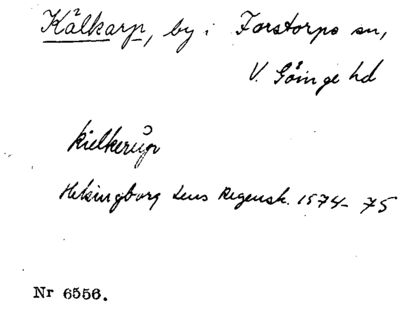 Kålkarp, by i Forstorps sn,
V. Göinge hd
Kielkerup
Helsingborg Lens Regensk. 1574-75
Nr 6556.